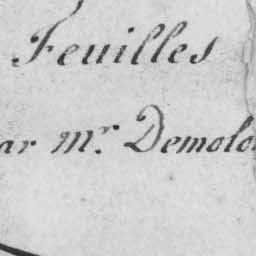 Feuilles
ar mr. Demolo